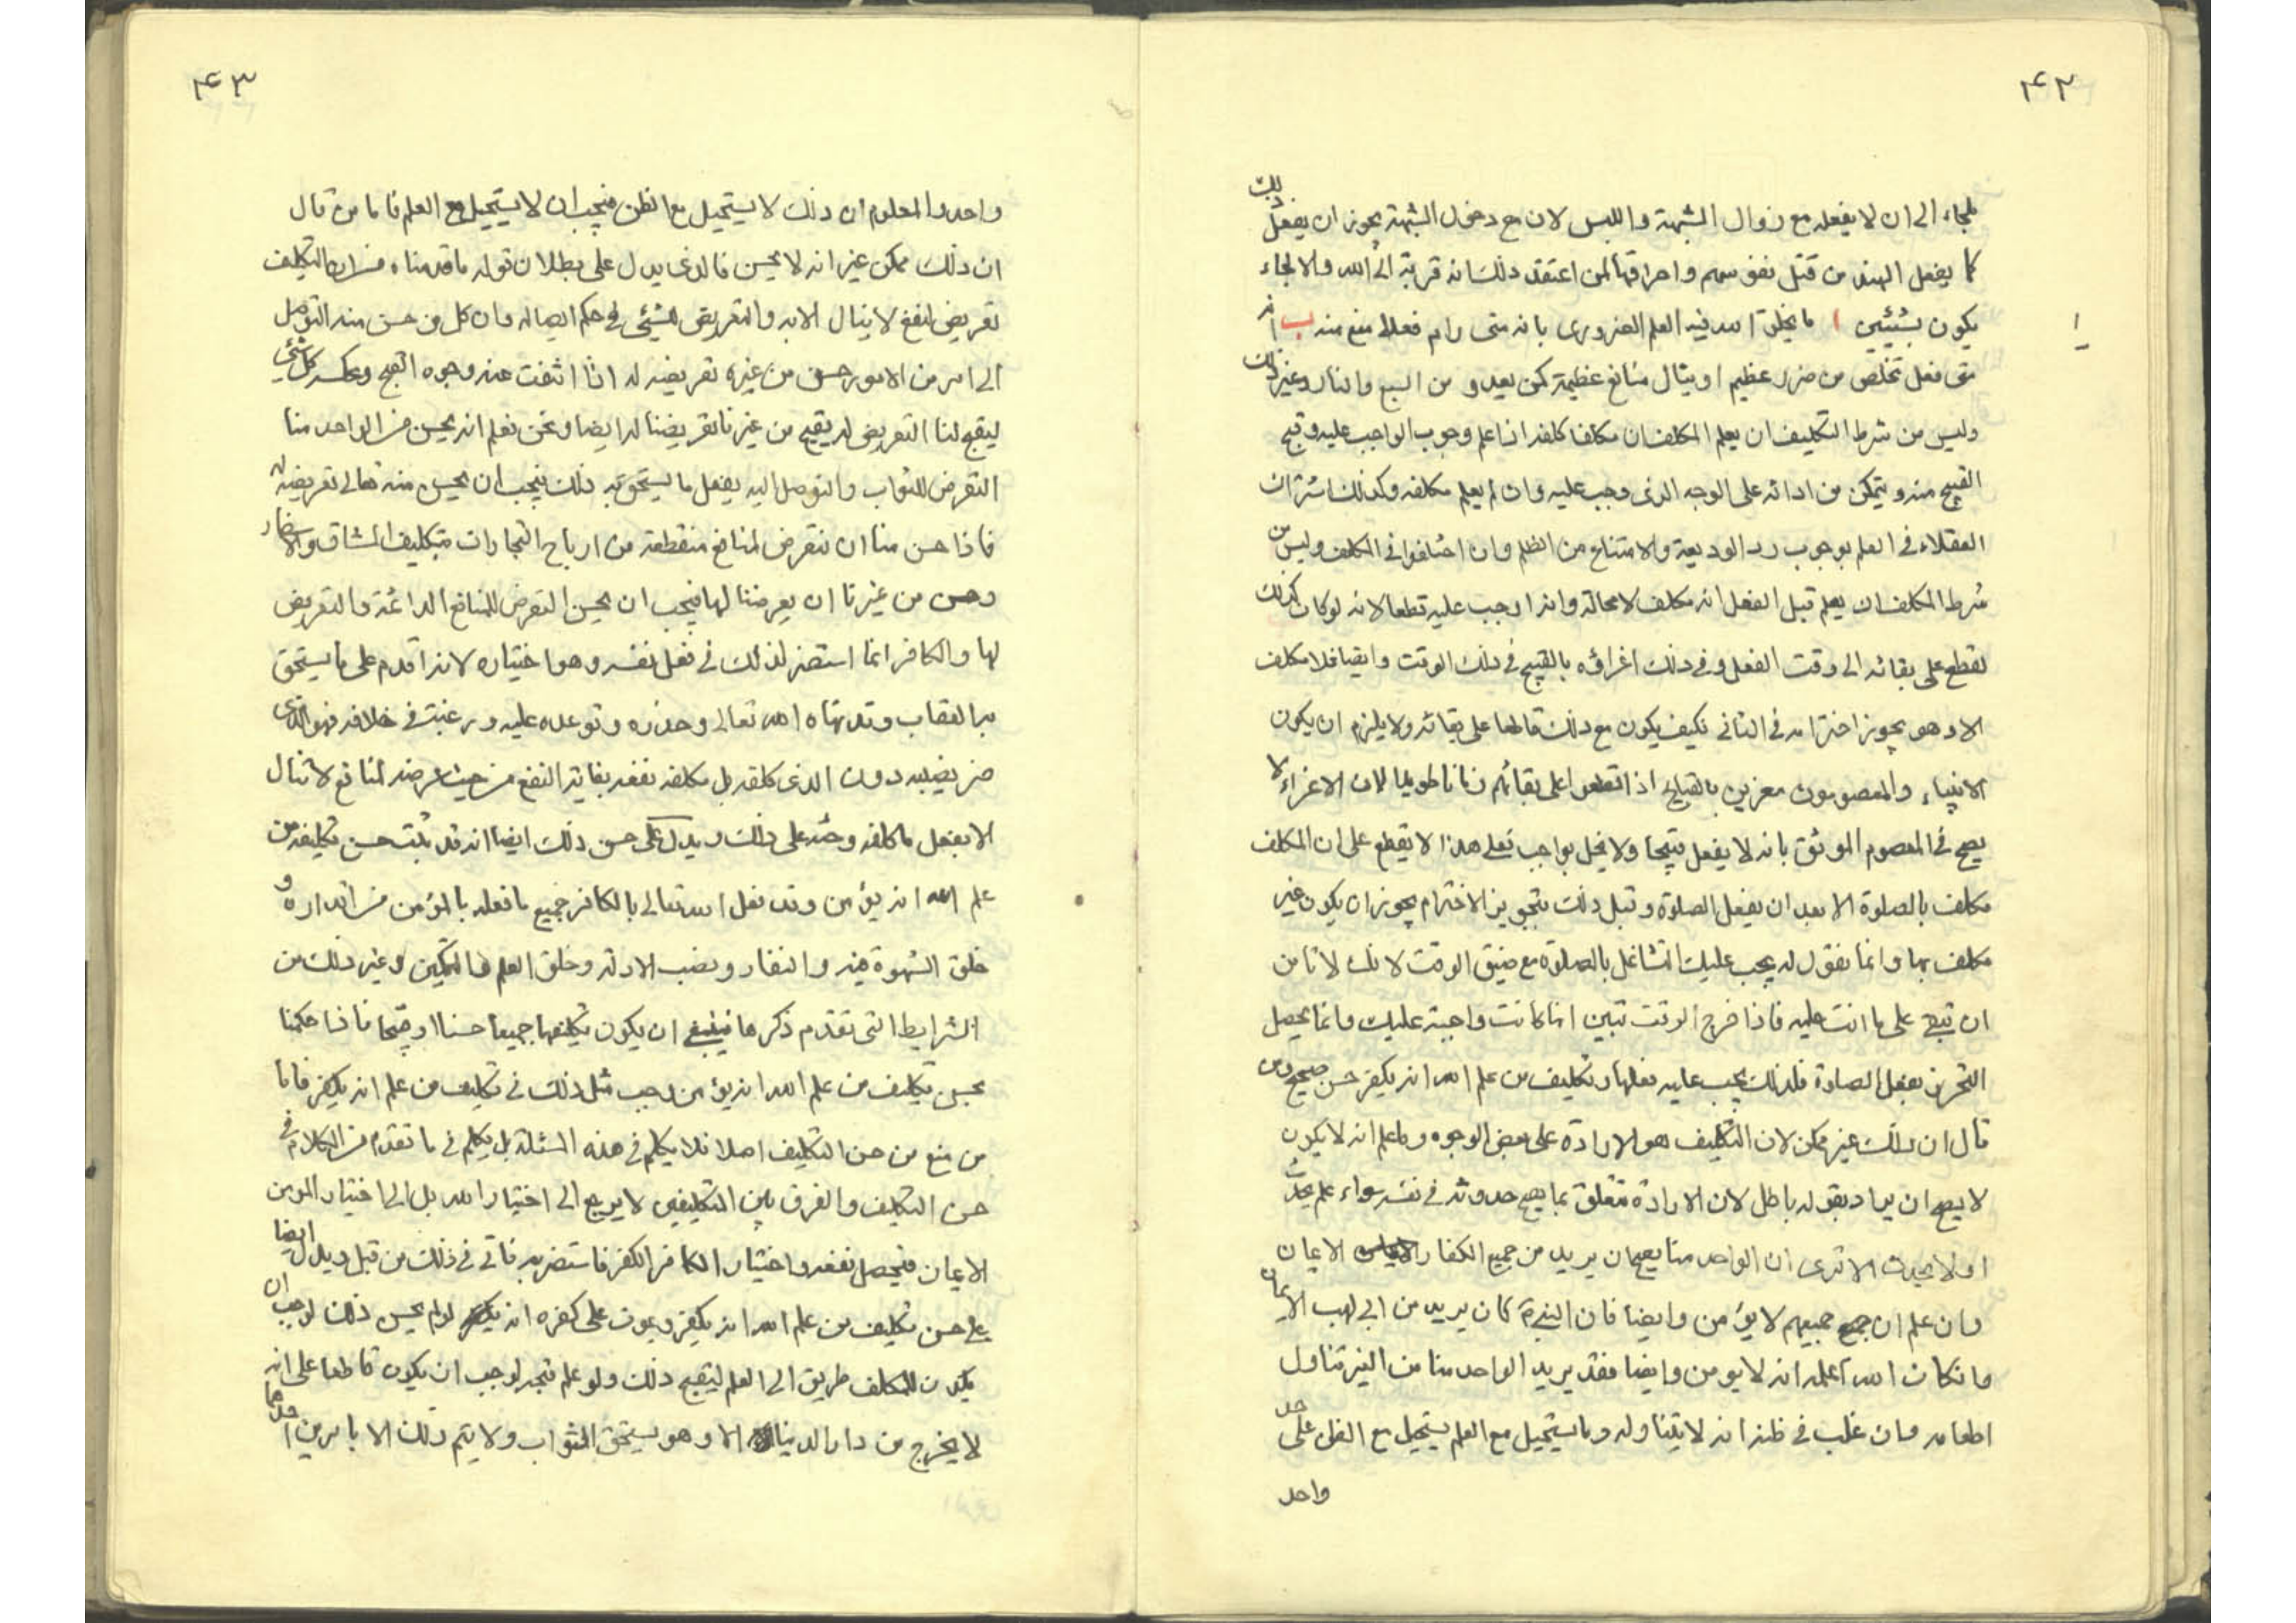 ۴۲
ملجاء الى ان لا يفعله مع زوال الشبهة واللبس لان مع دخول الشبهة يجوز ان يفعل ذلك
كما يفعل الهند من قتل نفوسهم واحراقها لمن اعتقد ذلك انه قربة الى الله والالجاء
يكون بشيئين ا ما يخلق الله فيه العلم الضرورى بانه متى رام فعلا منع منه ب انه
متى فعل تخلص من ضرر عظيم او ينال منافع عظيمة كمن يعدو من السبع والنار وغير ذلك
وليس من شرط التكليف ان يعلم المكلف ان مكلفا كلفه اذا علم وجوب الواجب عليه وقبح
القبيح منه ويتمكن من ادائه على الوجه الذى وجب عليه وان لم يعلم مكلفه وكذلك اشتراك
العقلاء فى العلم بوجوب رد الوديعة والامتناع من الظلم وان اختلفوا فى المكلف وليس من
شرط المكلف ان يعلم قبل الفعل انه مكلف لا محالة وانه اوجب عليه قطعا لانه لو كان كذلك
لقطع على بقائه الى وقت الفعل وفى ذلك اغراؤه بالقبيح فى ذلك الوقت وايضا فلا مكلف
الا وهو يجوز اخترامه فى الثانى فكيف يكون مع ذلك قاطعا على بقائه ولا يلزم ان يكون
الانبياء والمعصومون مغرين بالقبايح اذا قطعوا على بقائهم زمانا طويلا لان الاغراء لا
يصح فى المعصوم الموثوق بانه لا يفعل قبيحا ولا يخل بواجب فعلى هذا لا يقطع على ان المكلف
مكلف بالصلوة الا بعد ان يفعل الصلوة وقبل ذلك بتجويز الاخترام يجوز ان يكون غير
مكلف بها وانما نقول له يجب عليك التشاغل بالصلوة مع ضيق الوقت لانك لا تامن
ان تبقى على ما انت عليه فاذا خرج الوقت تبين انها كانت واجبة عليك وانما يحصل
التحرز بفعل الصلوة فلذلك يجب عليه فعلها وتكليف من علم الله انه يكفر حسن صحيح ومن
قال ان ذلك غير ممكن لان التكليف هو الارادة على بعض الوجوه وما علم انه لا يكون
لا يصح ان يراد بقوله باطل لان الارادة تتعلق بما يصح حدوثه فى نفسه سواء علم يحدث
او لا يحدث الا ترى ان الواحد منا يصح ان يريد من جميع الكفار الايمان
وان علم ان جميعهم لا يؤمن وايضا فان النبى كان يريد من ابى لهب الايمان
وان كان الله اعلمه انه لا يومن وايضا فقد يريد الواحد منا من الغير تناول
اطعامه وان غلب فى ظنه انه لا يتناوله وما يستحيل مع العلم يستحيل مع الظن على حد
واحد
۴۳
واحد والمعلوم ان ذلك لا يستحيل مع الظن فيجب ان لا يستحيل مع العلم فاما من قال
ان ذلك ممكن غير انه لا يحسن فالذى يدل على بطلان قوله ما قدمناه من ان التكليف
تعريض لنفع لا ينال الا به والتعريض للشئ فى حكم ايصاله وان كل من حسن منه التوصل
الى امر من الامور حسن من غيره تعريضه له اذا انتفت عنه وجوه القبح وعكسه كل شئ
ليقبح لنا التعرض له يقبح من غيرنا تعريضنا له ايضا ونحن نعلم انه يحسن من الواحد منا
التعرض للثواب والتوصل اليه بفعل ما يستحق به ذلك فيجب ان يحسن منه تعالى تعريضه له
فاذا حسن منا ان نتعرض لمنافع منقطعة من ارباح التجارات بتكليف المشاق والاسفار
وحسن من غيرنا ان يعرضنا لها فيجب ان يحسن التعرض للمنافع الدائمة والتعريض
لها والكافر انما استضر لذلك فى فعل نفسه وهو اختياره لانه اقدم على ما يستحق
به العقاب وقد نهاه الله تعالى وحذره وتوعده عليه ورغبته فى خلافه فهو الذى
ضر بضبه دون الذى كلفه بل مكلفه نفعه بغاية النفع من حيث عرضه لمنافع لا تنال
الا بفعل ما كلفه وحثه على ذلك ويدل على حسن ذلك ايضا انه قد ثبت حسن تكليفه من
علم الله انه يؤمن وقد فعل الله تعالى بالكافر جميع ما فعله بالمؤمن من اقداره و
خلق الشهوة فيه والنفار ونصب الادلة وخلق العلم والتمكين وغير ذلك من
الشرايط التى تقدم ذكرها فينبغى ان يكون تكليفهما جميعا حسنا او قبيحا فاذا حكمنا
بحسن تكليف من علم الله انه يؤمن وجب مثل ذلك فى تكليف من علم انه يكفر فاما
من منع من حسن التكليف اصلا فلا يكلم فى هذه المسئلة بل يكلم فى ما تقدم من الكلام فى
حسن التكليف والفرق بين التكليفين لا يرجع الى اختيار الله بل الى اختيار المومن
الايمان فيحصل نفعه واختيار الكافر الكفر فاستضر به فاتى فى ذلك من قبل ويدل ايضا
على حسن تكليف من علم الله انه يكفر ويموت على كفره انه لو لم يحسن ذلك لوجب ان
يكون للمكلف طريق الى العلم ليقبح ذلك ولو علم قبحه لوجب ان يكون قاطعا على انه
لا يخرج من دار الدنيا الا وهو يستحق الثواب ولا يتم ذلك الا بامرين احدهما